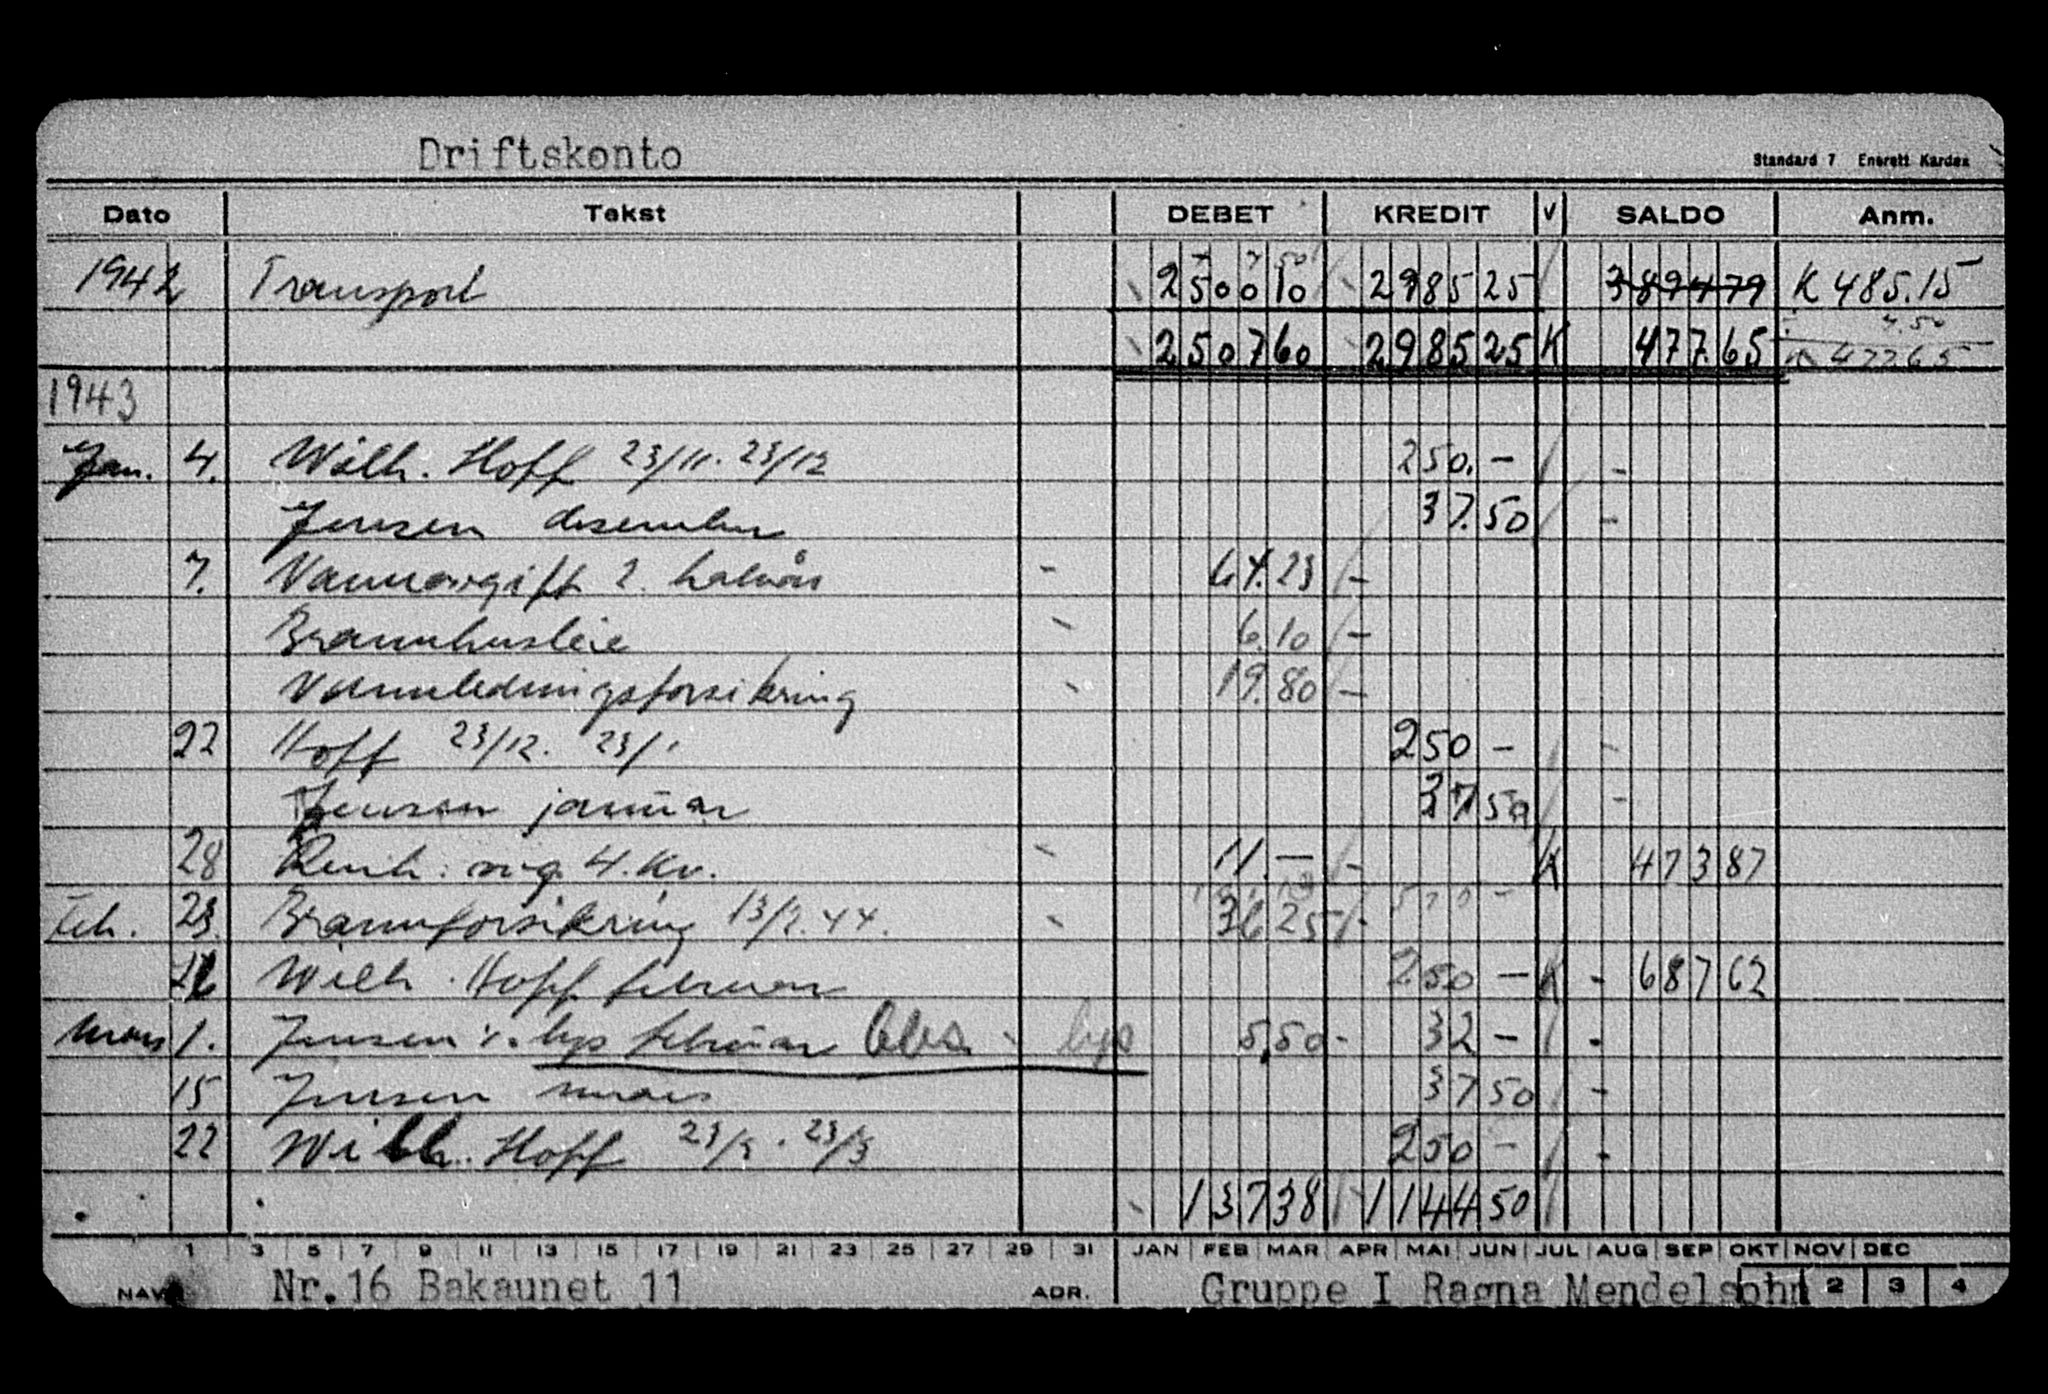 Driftskonto
Standard 7 Enerett Kardex
Dato Tekst DEBET KREDIT V SALDO Anm.
1942 Transport 2500 10 2985 25 3894 79 K 485.15
7.50
2507 60 2985 25 K 477.65 K 477.65
1943
Jan. 4. Wilh. Hoff 23/11. 23/12 250.-
Jensen desember 37.50
7. Vannavgift 2. halvår 64.23
Brannhusleie 6.10
Vannledningsforsikring 19.80
22 Hoff 23/12. 23/1 250 -
Jensen januar 37 50
28 Renh. 4. Kv. 11.- K 473 87
Feb. 23. Brannforsikring 13/2. 44. 36 25
26 Wilh. Hoff februar 250 - K 687 62
Mars 1. Jensen lys februar Obs lys 5,50 32 -
15 Jensen mars 37 50
22 Wilh. Hoff 23/2. 23/3 250 -
137 38 1144 50
1 3 5 7 9 11 13 15 17 19 21 23 25 27 29 31 JAN FEB MAR APR MAI JUN JUL AUG SEP OKT NOV DEC
NAVN Nr.16 Bakaunet 11 ADR. Gruppe I Ragna Mendelsohn 2 3 4